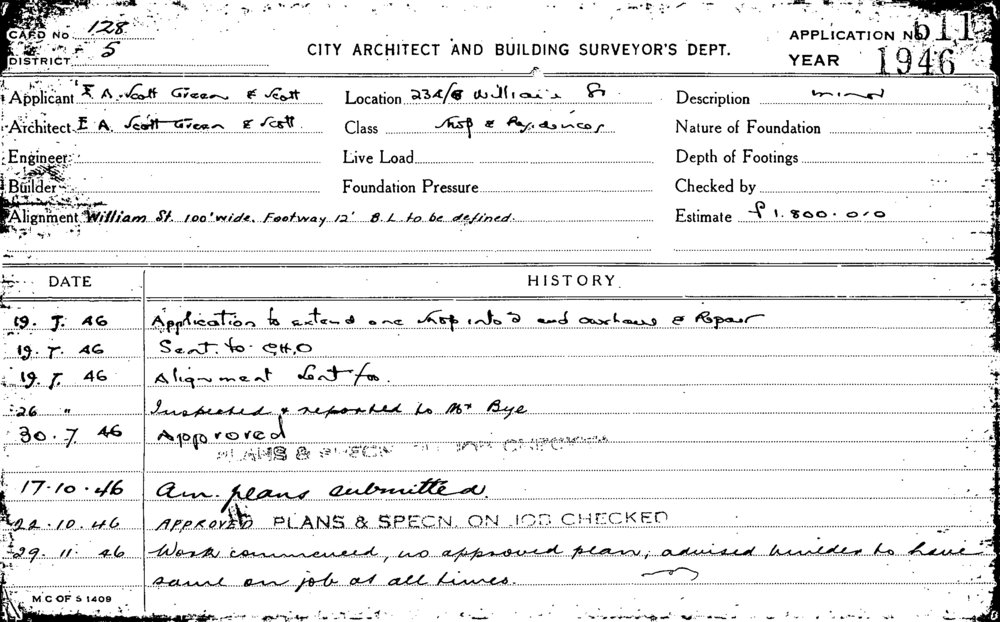 CARD No 128
DISTRICT 5
CITY ARCHITECT AND BUILDING SURVEYOR'S DEPT.
APPLICATION No 611
YEAR 1946
Applicant E A. Scott Green & Scott Location 234/6 William St. Description minor
Architect E A. Scott Green & Scott. Class Shop & Residences Nature of Foundation
Engineer Live Load Depth of Footings
Builder Foundation Pressure Checked by
Alignment William St. 100' wide. Footway 12' B.L to be defined. Estimate £1.800.0.0
DATE HISTORY
19. 7. 46 Application to extend one shop into 2 and overhaul & Repair
19. 7. 46 Sent. to C.H.O
19. 7. 46 Alignment sent for.
26 " Inspected & reported to Mr Bye
30. 7 46 Approved
PLANS & SPECN ON JOB CHECKED
17.10.46 Am. plans submitted.
22.10.46 APPROVED PLANS & SPECN. ON JOB CHECKED
29.11.46 Work commenced, no approved plan, advised builder to have
same on job at all times.
M C OF S 1409